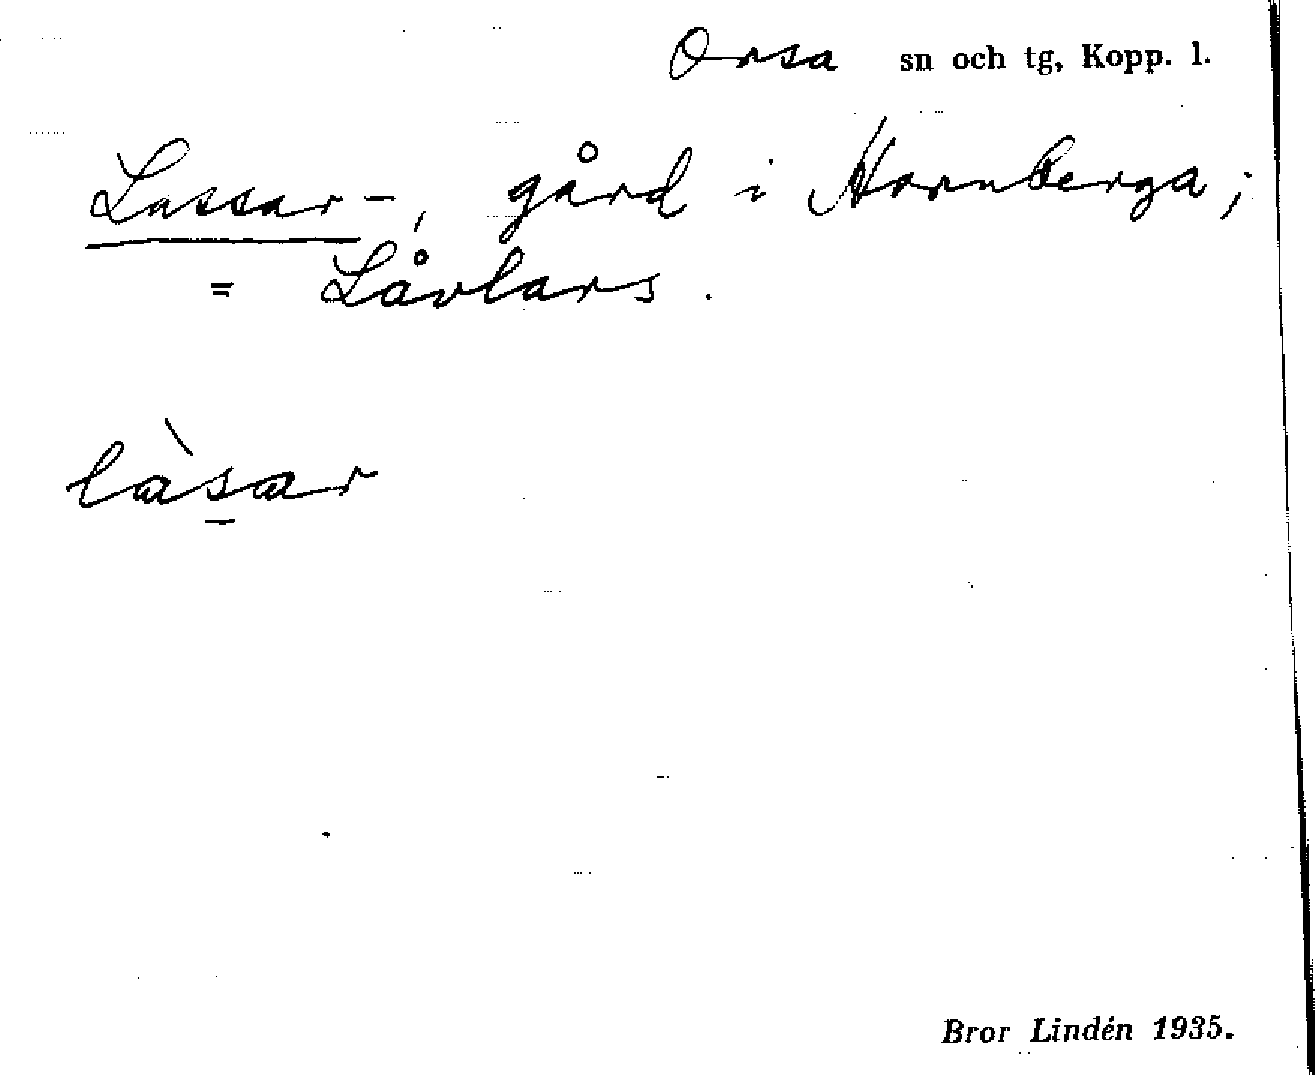 Orsa sn och tg, Kopp. l.
Lassar-, gård i Hornberga;
= Låvlars.
làsar
Bror Lindén 1935.